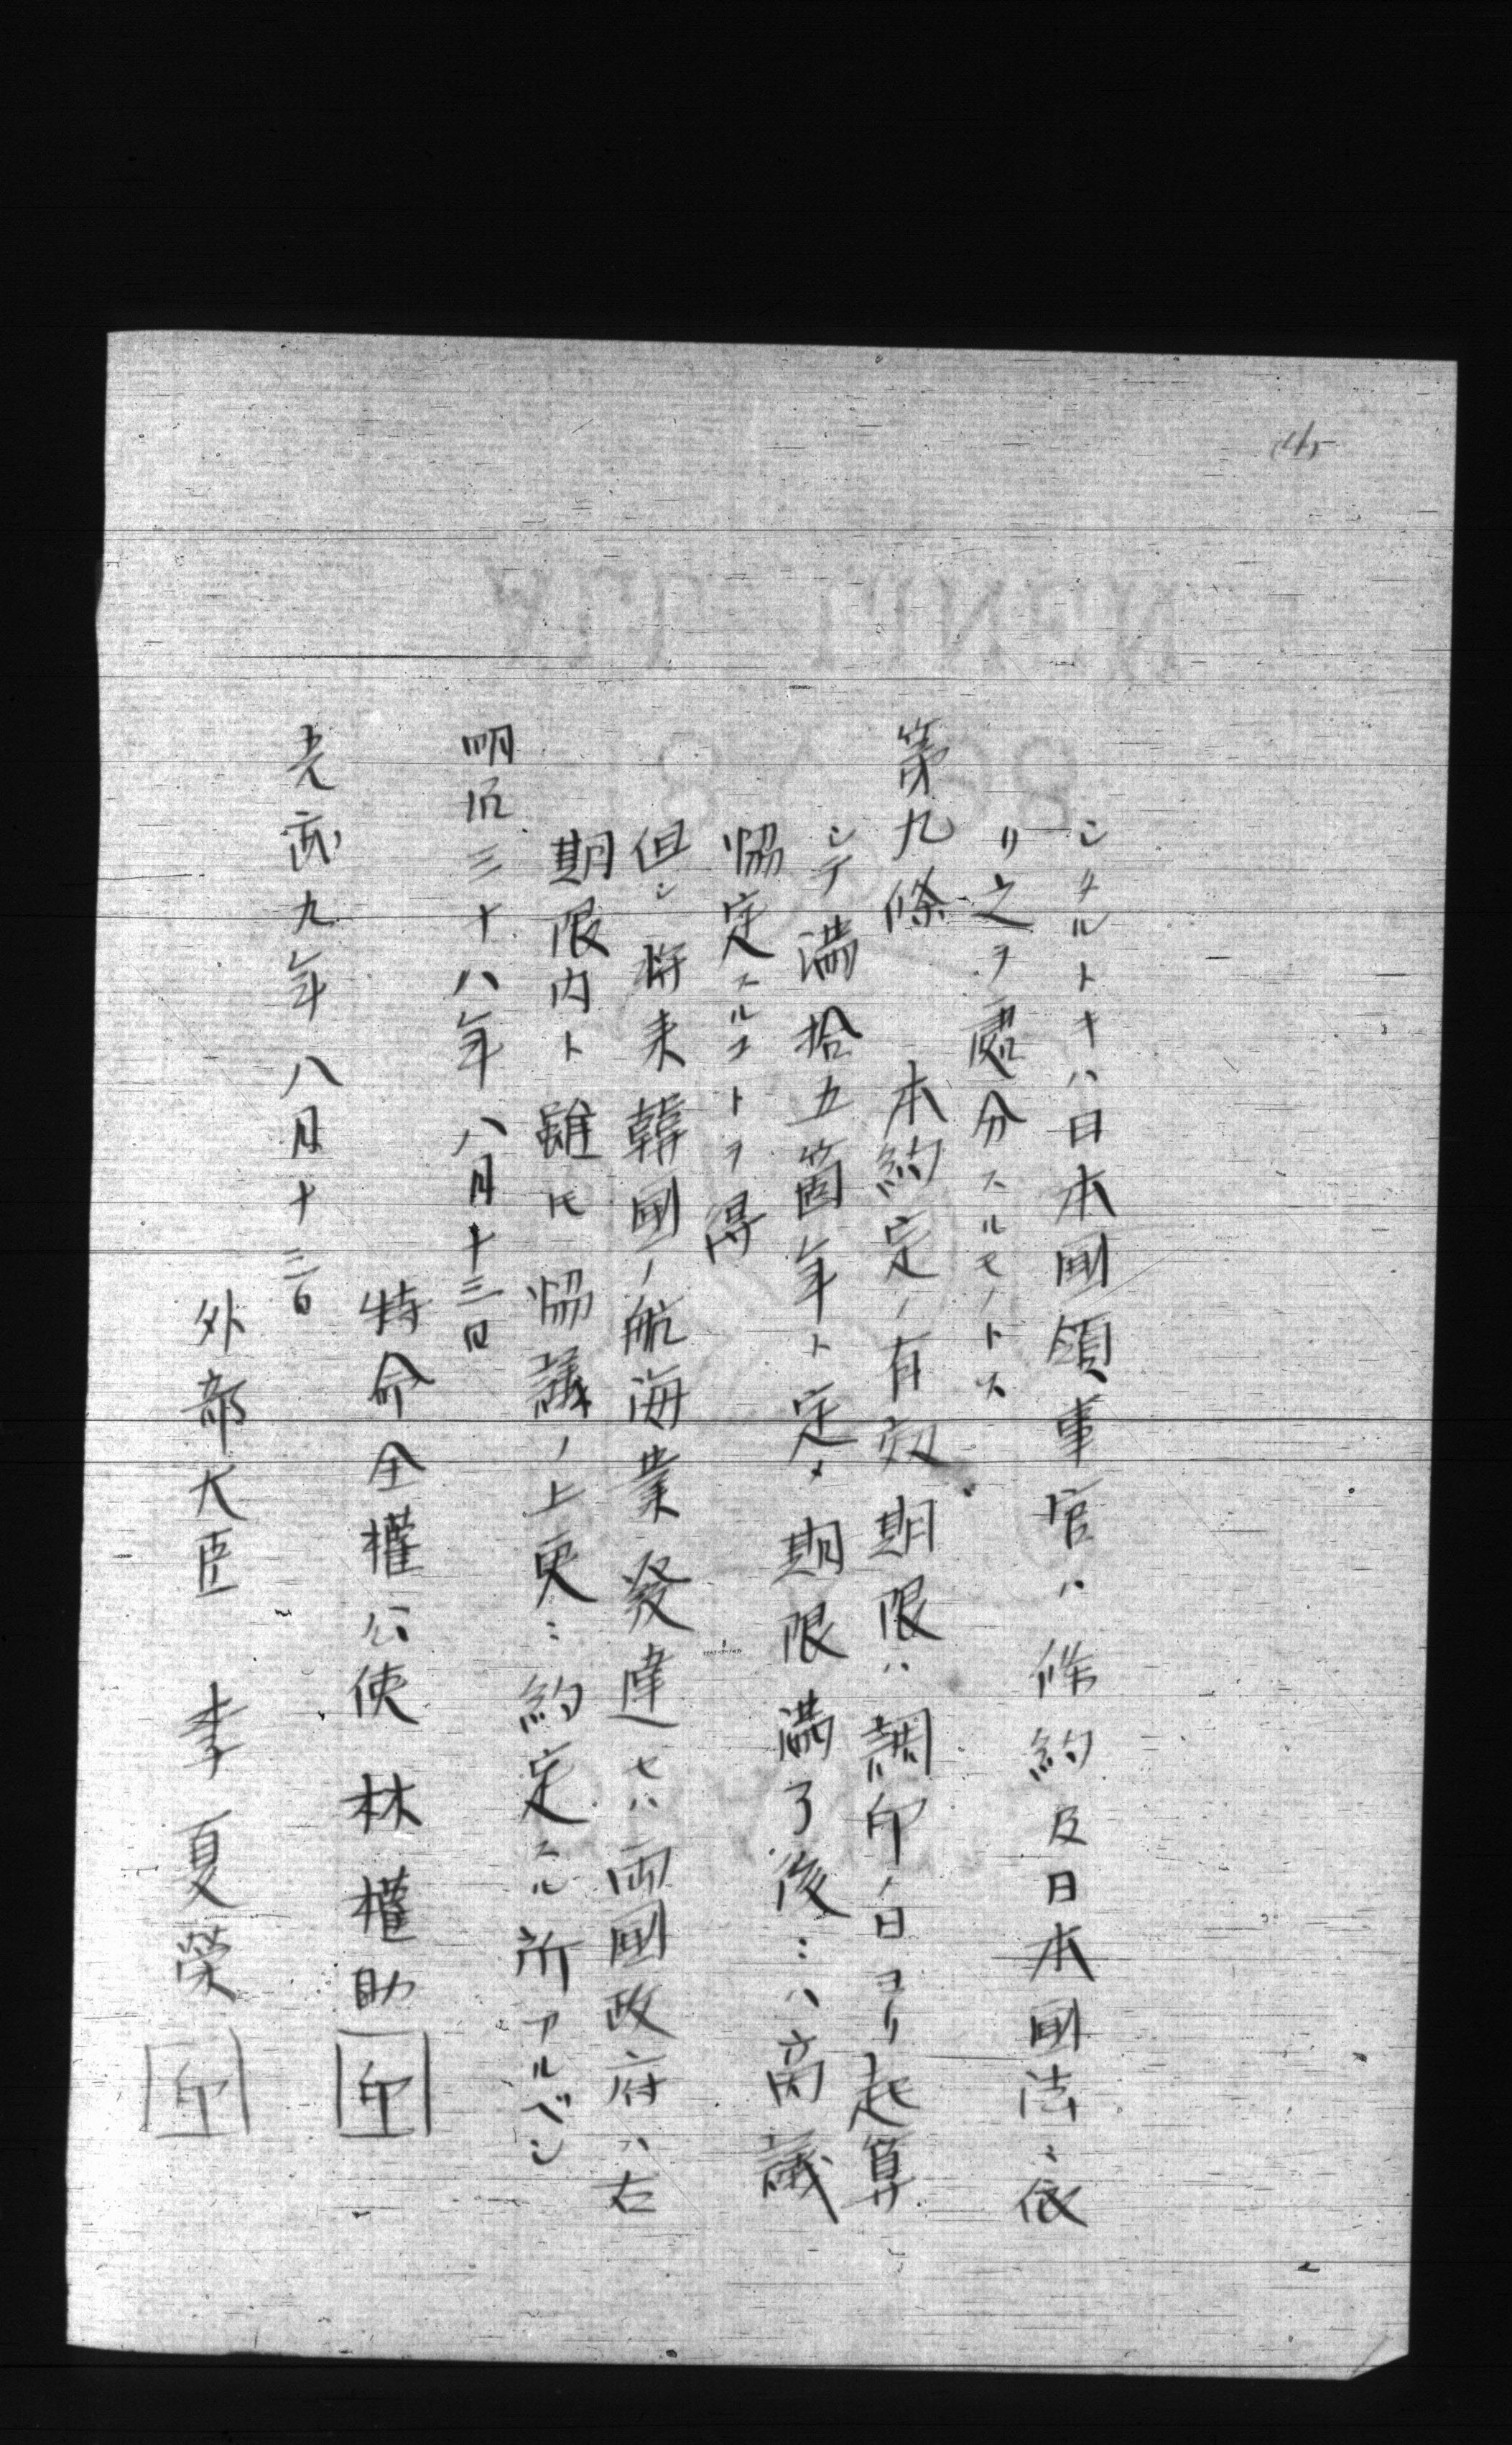 (4)
シタルトキハ日本國領事官ハ條約及日本國法ニ依
リ之ヲ處分スルモノトス
第九條 本約定ノ有效期限ハ調印ノ日ヨリ起算
シテ滿拾五箇年ト定メ期限滿了後ニハ商議
協定スルコトヲ得
但シ將来韓國ノ航海業發達セハ両國政府ハ右
期限内ト雖モ協議ノ上更ニ約定スル所アルベシ
明治三十八年八月十三日
特命全權公使 林權助 印
光武九年八月十三日
外部大臣 李夏榮 印